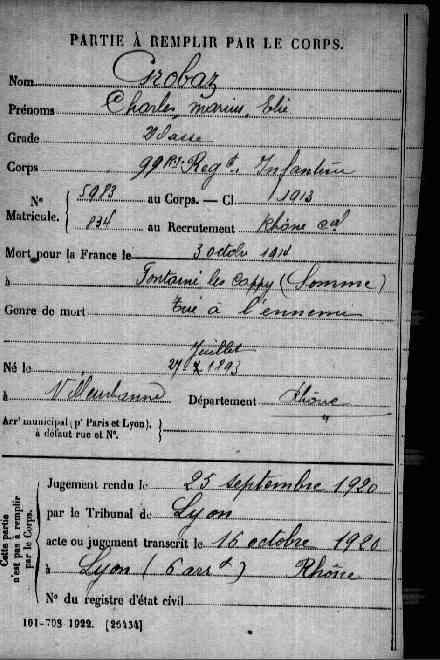 PARTIE À REMPLIR PAR LE CORPS.
Nom Grobaz
Prénoms Charles, Marius, Elie
Grade 2e classe
Corps 99e Regt. Infanterie
N° Matricule. 5983 au Corps. — Cl 1913
834 au Recrutement Rhône cal
Mort pour la France le 3 octobre 1914
à Fontaine les Cappy (Somme)
Genre de mort Tué à l'ennemi
Juillet
Né le 27 7 1893
à Villeurbanne Département Rhône
Arrt municipal (pr Paris et Lyon), à défaut rue et N°. "
Cette partie n'est pas à remplir par le Corps.
Jugement rendu le 25 septembre 1920
par le Tribunal de Lyon
acte ou jugement transcrit le 16 octobre 1920
à Lyon (6 arrt) Rhône
N° du registre d'état civil
101-708 1922. [26434]